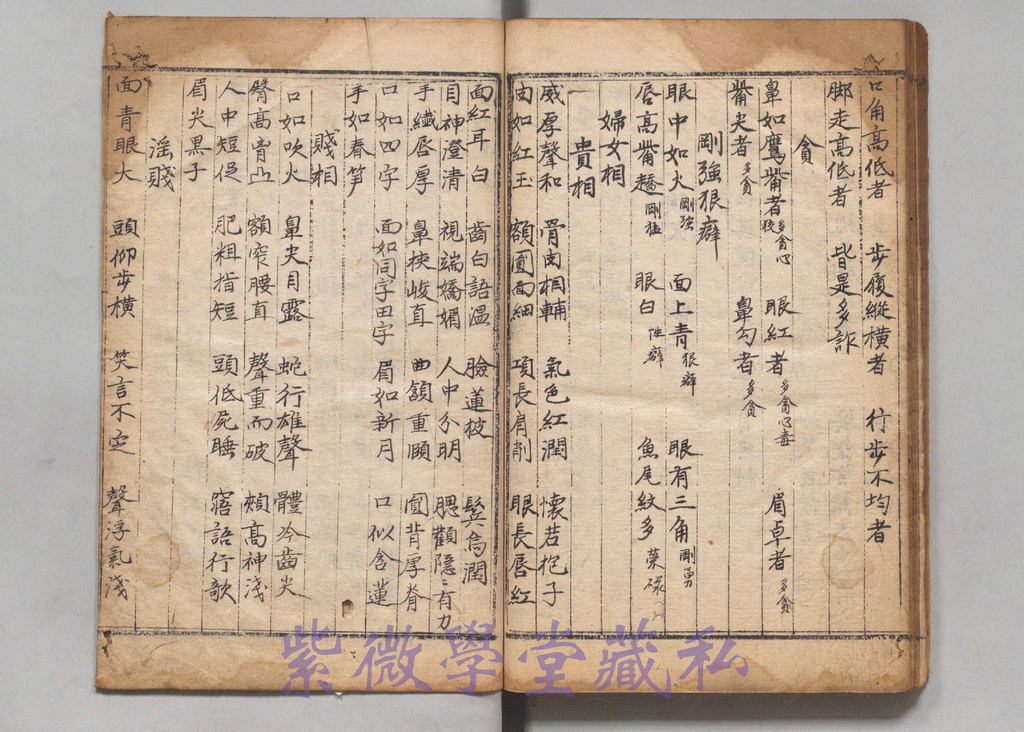 口角高低者 步履縱橫者 行步不均者
腳走高低者 皆是多詐
貪
鼻如鷹嘴者 多貪心狡 眼紅者 多貪心毒 眉卓者 多貪
嘴尖者 多貪 鼻勾者 多貪
剛強狠癖
眼中如火 剛強 面上青 狠癖 眼有三角 剛勇
唇高嘴趫 剛猛 眼白 性癖 魚尾紋多 榮碌
婦女相
貴相
威厚聲和 骨肉相輔 氣色紅潤 懷若抱子
肉如紅玉 額圓面細 項長肩削 眼長唇紅
面紅耳白 齒白語溫 臉蓮枝 鬂烏潤
目神澄清 視端嬌媚 人中分明 腮顴隱隱有力
手纖唇厚 鼻梜峻直 曲頷重頤 圓背厚脊
口如四字 面如同字田字 眉如新月 口似含蓮
手如春笋
賤相
口如吹火 鼻尖目露 蛇行雄聲 體冷齒尖
臀高肯凸 額窄腰直 聲重而破 頰高神淺
人中短促 肥粗指短 頭低屍睡 窹語行歌
眉尖黑子
淫賤
面青眼大 頭仰步橫 笑言不定 聲浮氣淺
紫微學堂藏私